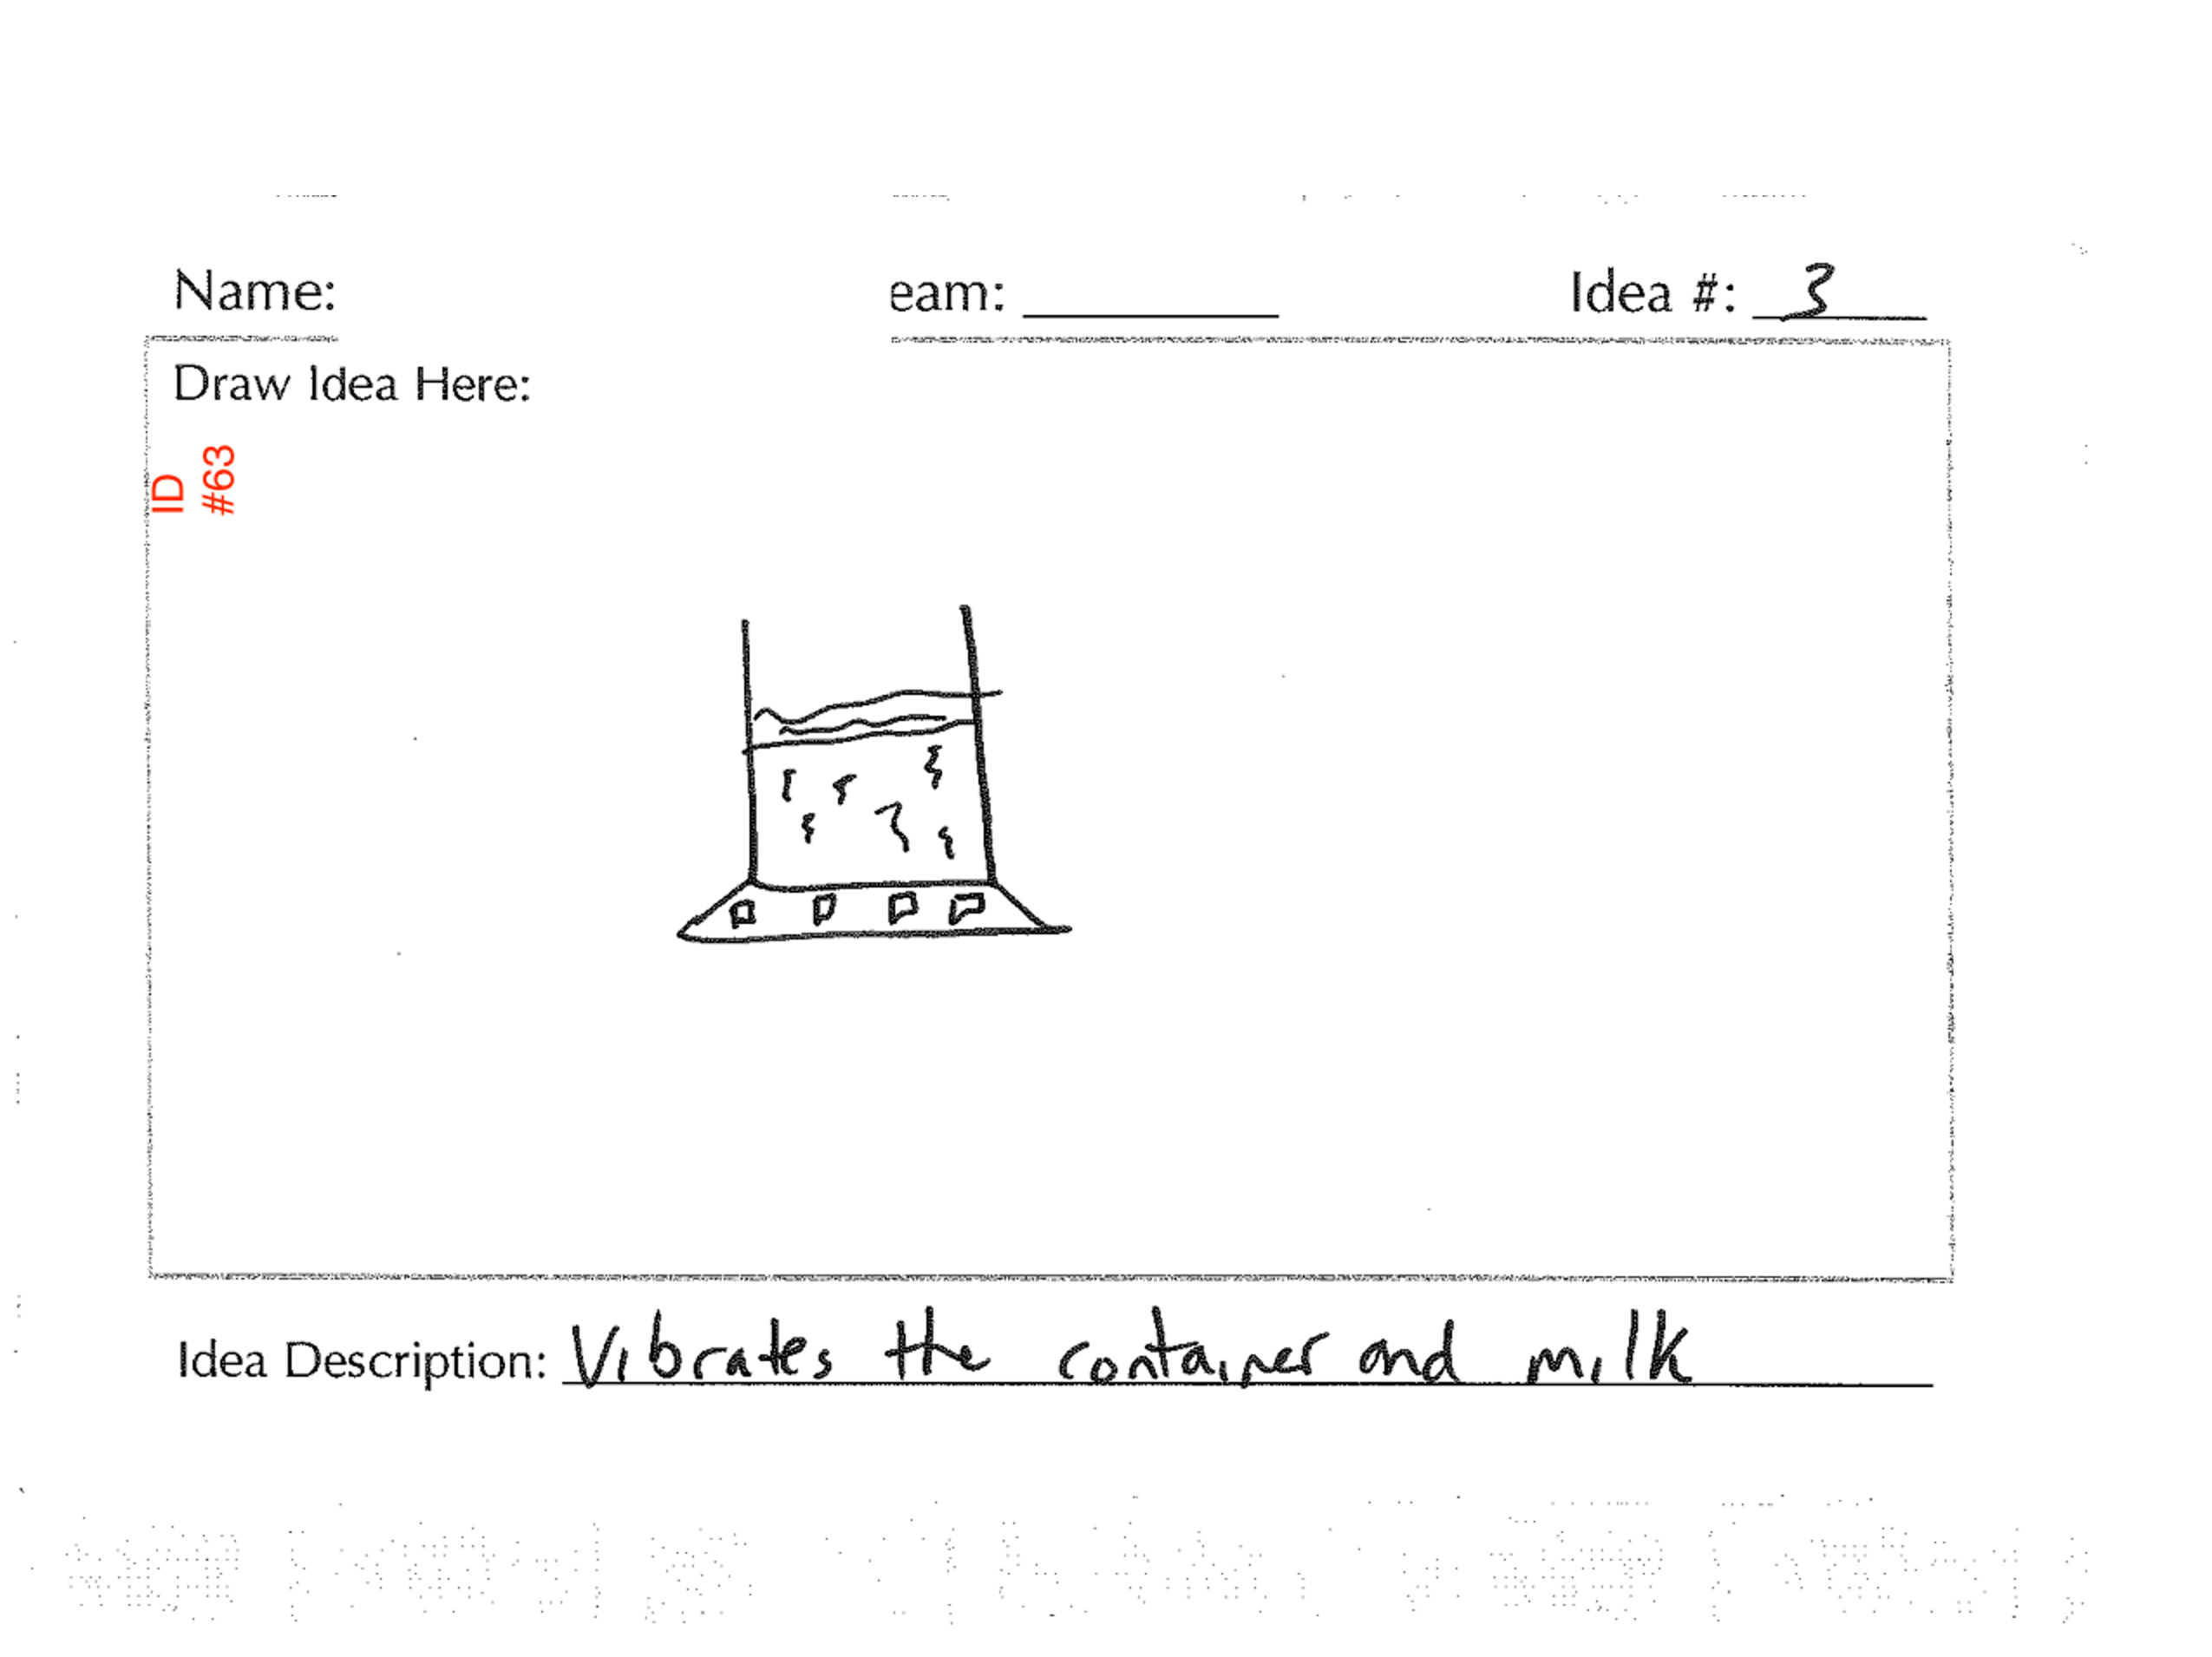 Name: eam: Idea #: 3
Draw Idea Here:
ID
#63
Idea Description: Vibrates the container and milk